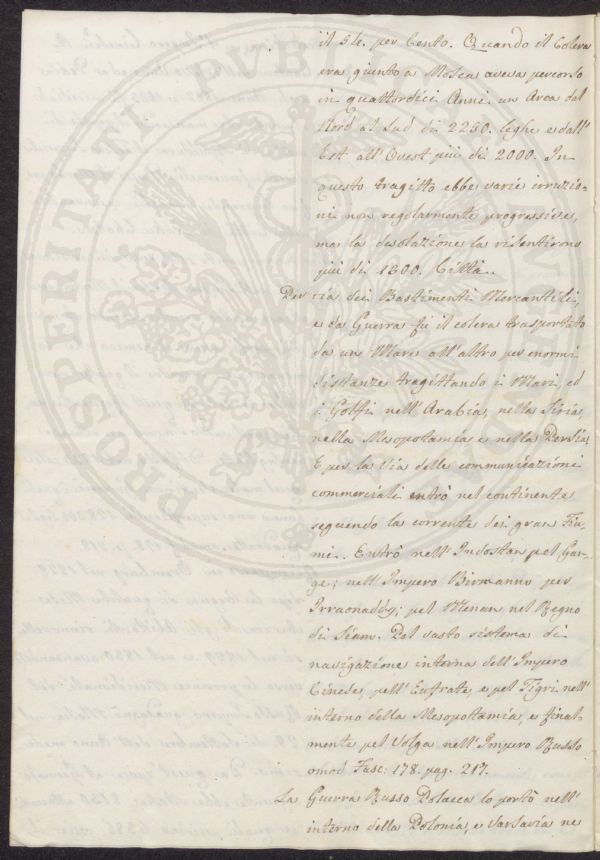 il 5le. per Cento. Quando il Colera
era giunto a Mosca aveva percorso
in quattordici Anni un Area dal
Nord al Sud di 2250. leghe e dall'
Est all'Ovest più di 2000. In
questo tragitto ebbe varie irruzio-
ni non regolarmente progressive,
ma la desolazione la risentirono
più di 1300. Città.
Per via dei Bastimenti Mercantili,
e da Guerra fù il colera trasportato
da un Mare all'altro per enormi
distanze tragittando i Mari, ed
i Golfi nell'Arabia, nella Siria,
nella Mesopotamia e nella Persia.
E per la via delle communicazioni
commerciali entrò nel continente
seguendo la corrente dei gran Fiu-
mi. Entrò nell'Indostan pel Gan-
ge; nell'Impero Birmanno per
Irraonaddy; pel Menan nel Regno
di Siam. Pel vasto sistema di
navigazione interna dell'Impero
Cinese, pell'Eufrate, e pel Tigri nell'
interno della Mesopotamia, e final-
mente pel Volga nell'Impero Russo
omod Fasc: 178. pag. 217.
La Guerra Russo Polacca lo portò nell'
interno della Polonia, e Varsavia ne
PROSPERITATI PUBLICAE AUGENDAE